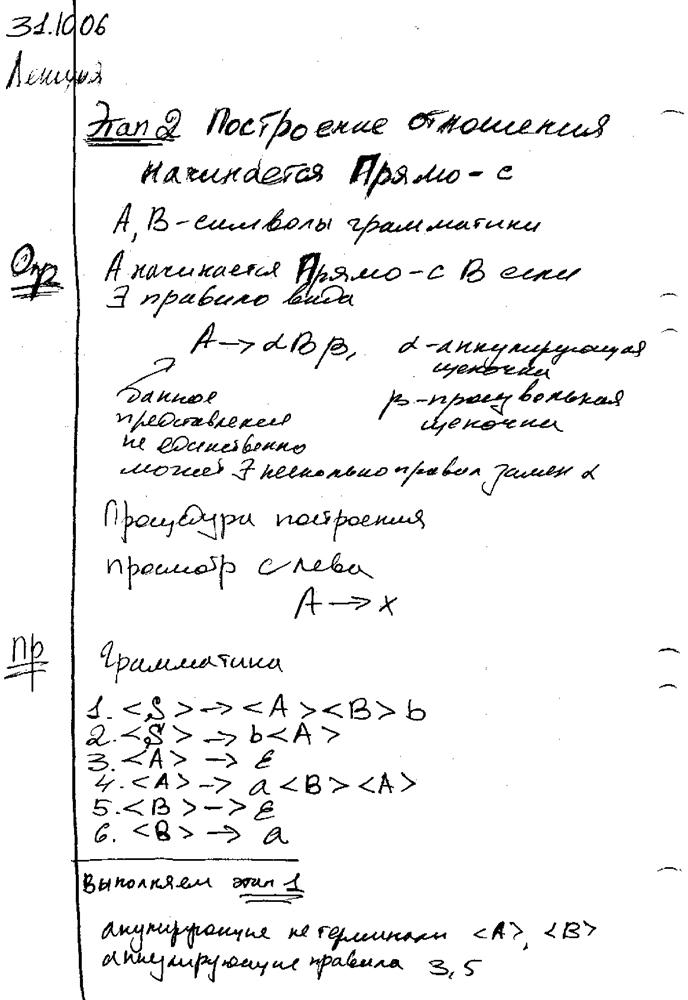 31.10.06
Лекция
Этап 2 Построение отношения
начинается Прямо-с
A, B - символы грамматики
Опр
A начинается Прямо-с B если
∃ правило вида
A → αBβ, α-аннулирующая
цепочка
данное β-произвольная
представление цепочка
не единственно
может ∃ несколько правил замен α
Процедура построения
просмотр слева
A → x
Пр
Грамматика
1. <S> → <A><B>b
2. <S> → b<A>
3. <A> → ε
4. <A> → a<B><A>
5. <B> → ε
6. <B> → a
Выполняем этап 1
анулирующие нетерминалы <A>, <B>
аннулирующие правила 3, 5